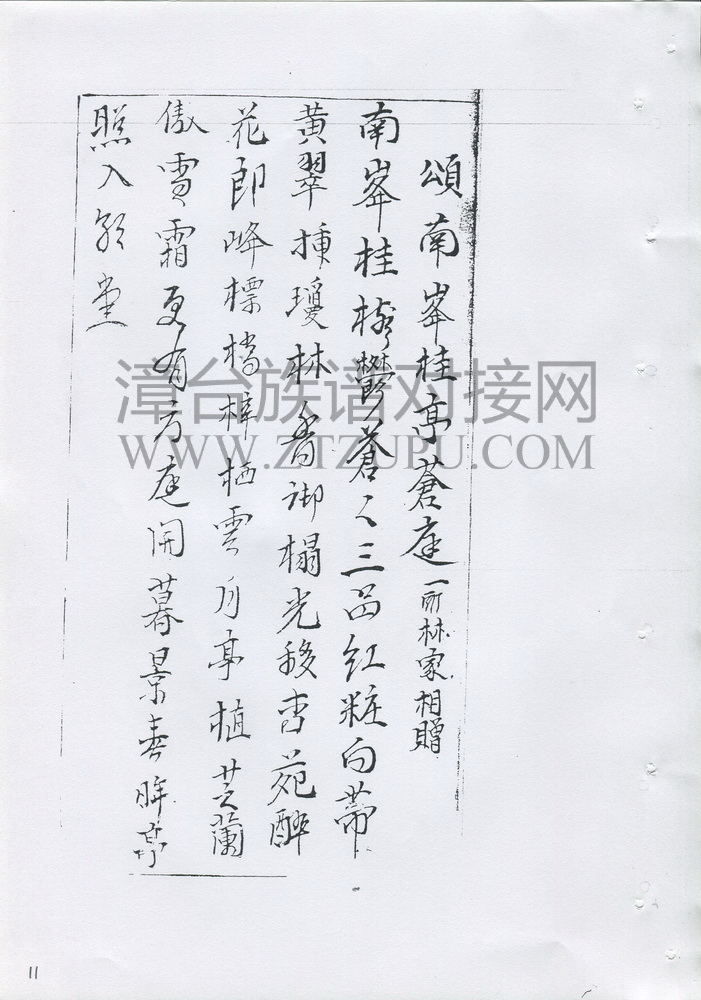 頌南峯桂亭蒼庭 一所林家相贈
南峯桂樹鬱蒼々三品紅粧白蒂
黃翠捶瓊林香御榻光移杏苑醉
花郎峰標檔梓栖雲月亭植芝蘭
傲雪霜更有方庭開暮景春暉亭
照入彩堂
漳台族谱对接网
WWW.ZTZUPU.COM
11